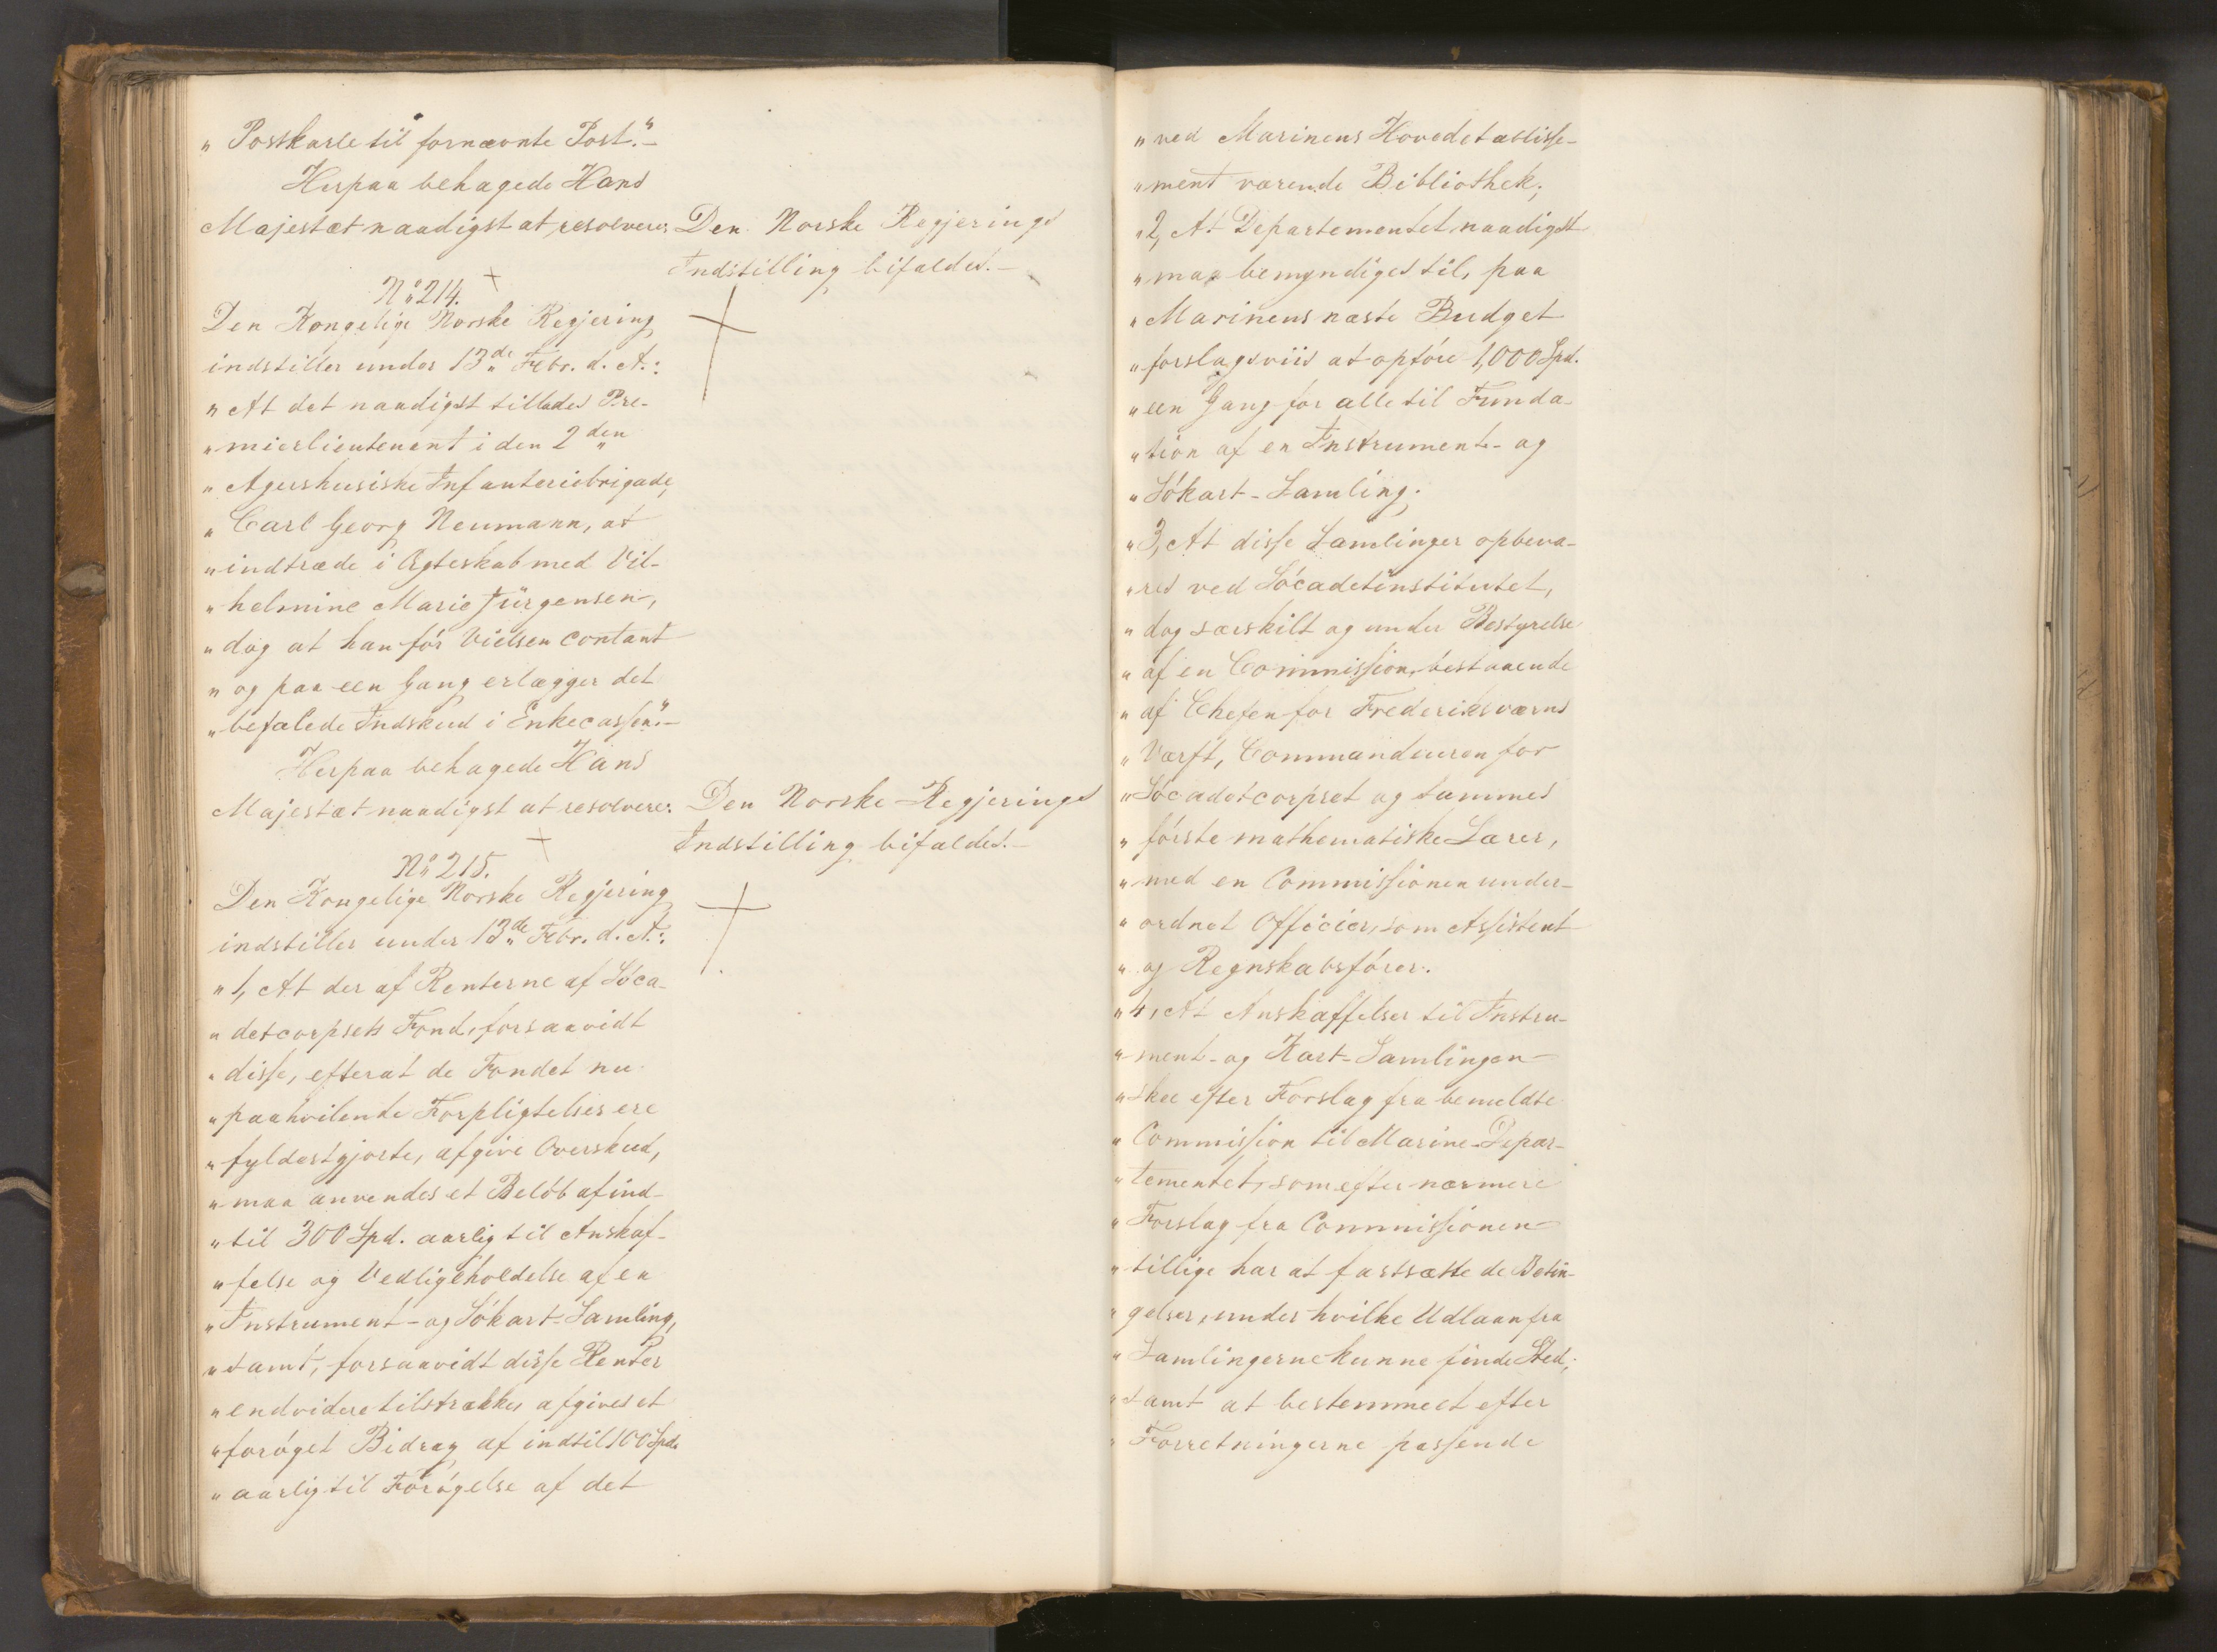 „Postkarle til fornævnte Post."-
Herpaa behagede Hans
Majestæt naadigst at resolvere: Den Norske Regjerings
Indstilling bifaldes.-
No 214.
Den Kongelige Norske Regjering
indstiller under 13de Febr. d. A.:
„At det naadigst tillades Pre-
„mierlieutenant i den 2den
„Agershusiske Infanteriebrigade,
„Carl Georg Neumann, at
„indtræde i Ægteskab med Vil-
„helmine Marie Jürgensen,
„dog at han för Vielsen contant
„og paa een Gang erlægger det
„befalede Indskud i Enkecassen."-
Herpaa behagede Hans
Majestæt naadigst at resolvere: Den Norske Regjerings
Indstilling bifaldes.-
No 215.
Den Kongelige Norske Regjering
indstiller under 13de Febr. d. A.:
„1, At der af Renterne af Söca-
„detcorpsets Fond, forsaavidt
„disse, efterat de Fondet nu
„paahvilende Forpligtelser ere
„fyldestgjorte, afgive Overskud,
„maa anvendes et Belöb af ind-
„til 300 Spd. aarlig til Anskaf-
„felse og Vedligeholdelse af en
„Instrument- og Sökart-Samling,
„samt, forsaavidt disse Renter
„endvidere tilstrække, afgives et
„foröget Bidrag af indtil 100 Spd.
„aarlig til Forögelse af det
„ved Marinens Hovedetablisse-
„ment værende Bibliothek;
„2, At Departementet naadigst
„maa bemyndiges til, paa
„Marinens næste Budget
„forslagsviis at opföre 1,000 Spd.
„een Gang for alle til Funda-
„tion af en Instrument- og
„Sökart-Samling;
„3, At disse Samlinger opbeva-
„res ved Söcadetinstitutet,
„dog særskilt og under Bestyrelse
„af en Commission, bestaaende
„af Chefen for Frederiksværns
„Værft, Commandeuren for
„Söcadetcorpset og sammes
„förste mathematiske Lærer,
„med en Commissionen under-
„ordnet Officier, som Assistent
„og Regnskabsförer.
„4, At Anskaffelser til Instru-
„ment- og Kart-Samlingen
„skee efter Forslag fra bemeldte
„Commission til Marine-Depar-
„tementet, som efter nærmere
„Forslag fra Commissionen
„tillige har at fastsætte de Betin-
„gelser, under hvilke Udlaan fra
„Samlingerne kunne finde Sted;
„samt at bestemme et efter
„Forretningerne passende